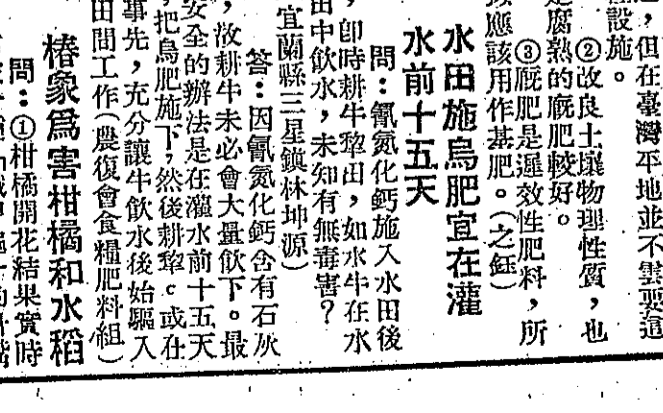 但在臺灣平地並不需要這
設施。
②改良土壤物理性質，也
腐熟的廐肥較好。
③廐肥是遲效性肥料，所
應該用作基肥。（之鈺）
水田施烏肥宜在灌
水前十五天
問：氰氮化鈣施入水田後
，卽時耕牛犂田，如水牛在水
田中飲水，未知有無毒害？
宜蘭縣三星鎮林坤源）
答：因氰氮化鈣含有石灰
，故耕牛未必會大量飲下。最
安全的辦法是在灌水前十五天
，把烏肥施下，然後耕犂。或在
事先，充分讓牛飲水後始驅入
田間工作（農復會食糧肥料組）
椿象爲害柑橘和水稻
問：①柑橘開花結果實時